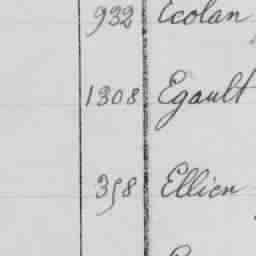 932 Ecolan
1308 Egault
358 Ellien